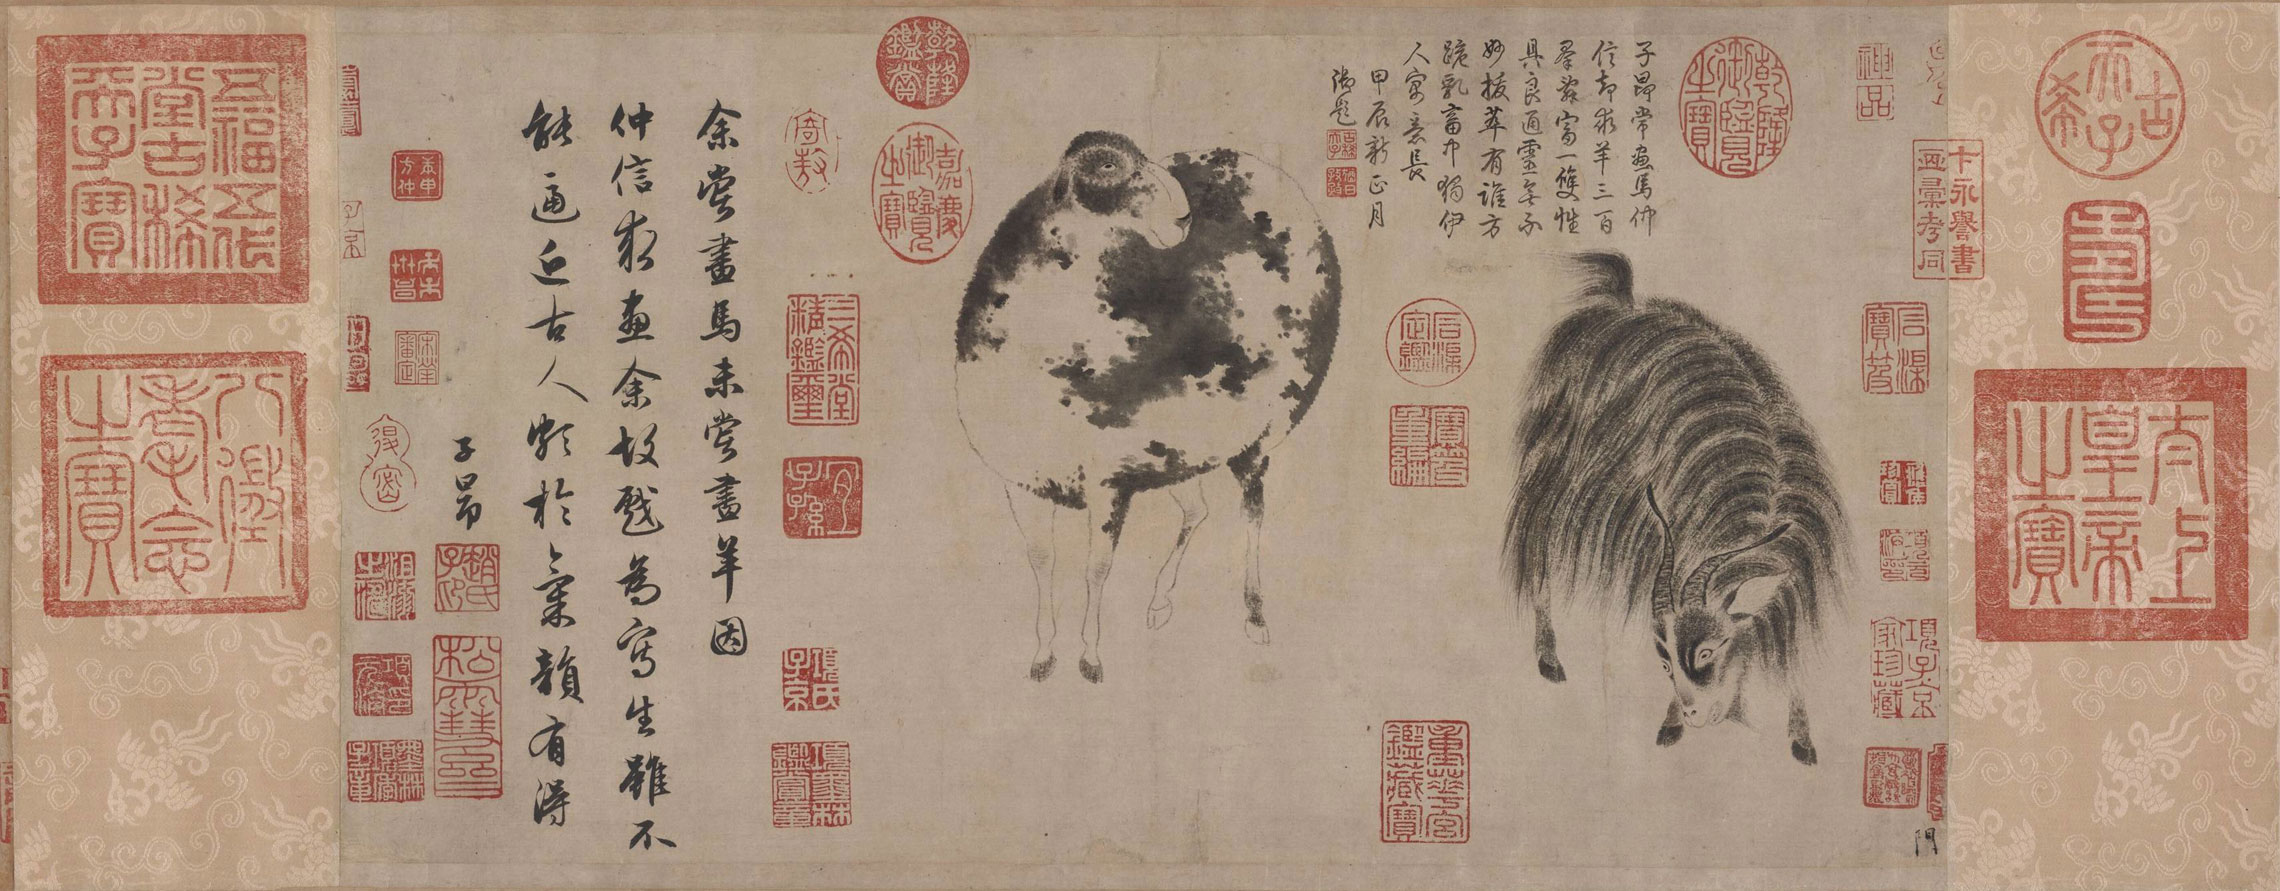 古稀天子
壽
太上皇帝之寶
卞永譽書
畫彙考同
神品
項子京
家珍藏
乾隆御覽之寶
子昂常畫馬仲
信却求羊三百
羣辭富一雙性
具良通靈無不
妙拔萃有誰方
跪乳畜中獨伊
人寓意長
甲辰新正月
御題
石渠寶笈
石渠定鑑
寶笈重編
重華宮鑑藏寶
乾隆鑑賞
嘉慶御覽之寶
三希堂精鑑璽
宜子孫
項氏子京
項墨林鑑賞章
余嘗畫馬未嘗畫羊因
仲信求畫余故戲為寫生雖不
能逼近古人頗於氣韻有得
子昂
趙氏子昂
松雪齋
五福五代堂古稀天子寶
八徵耄念之寶